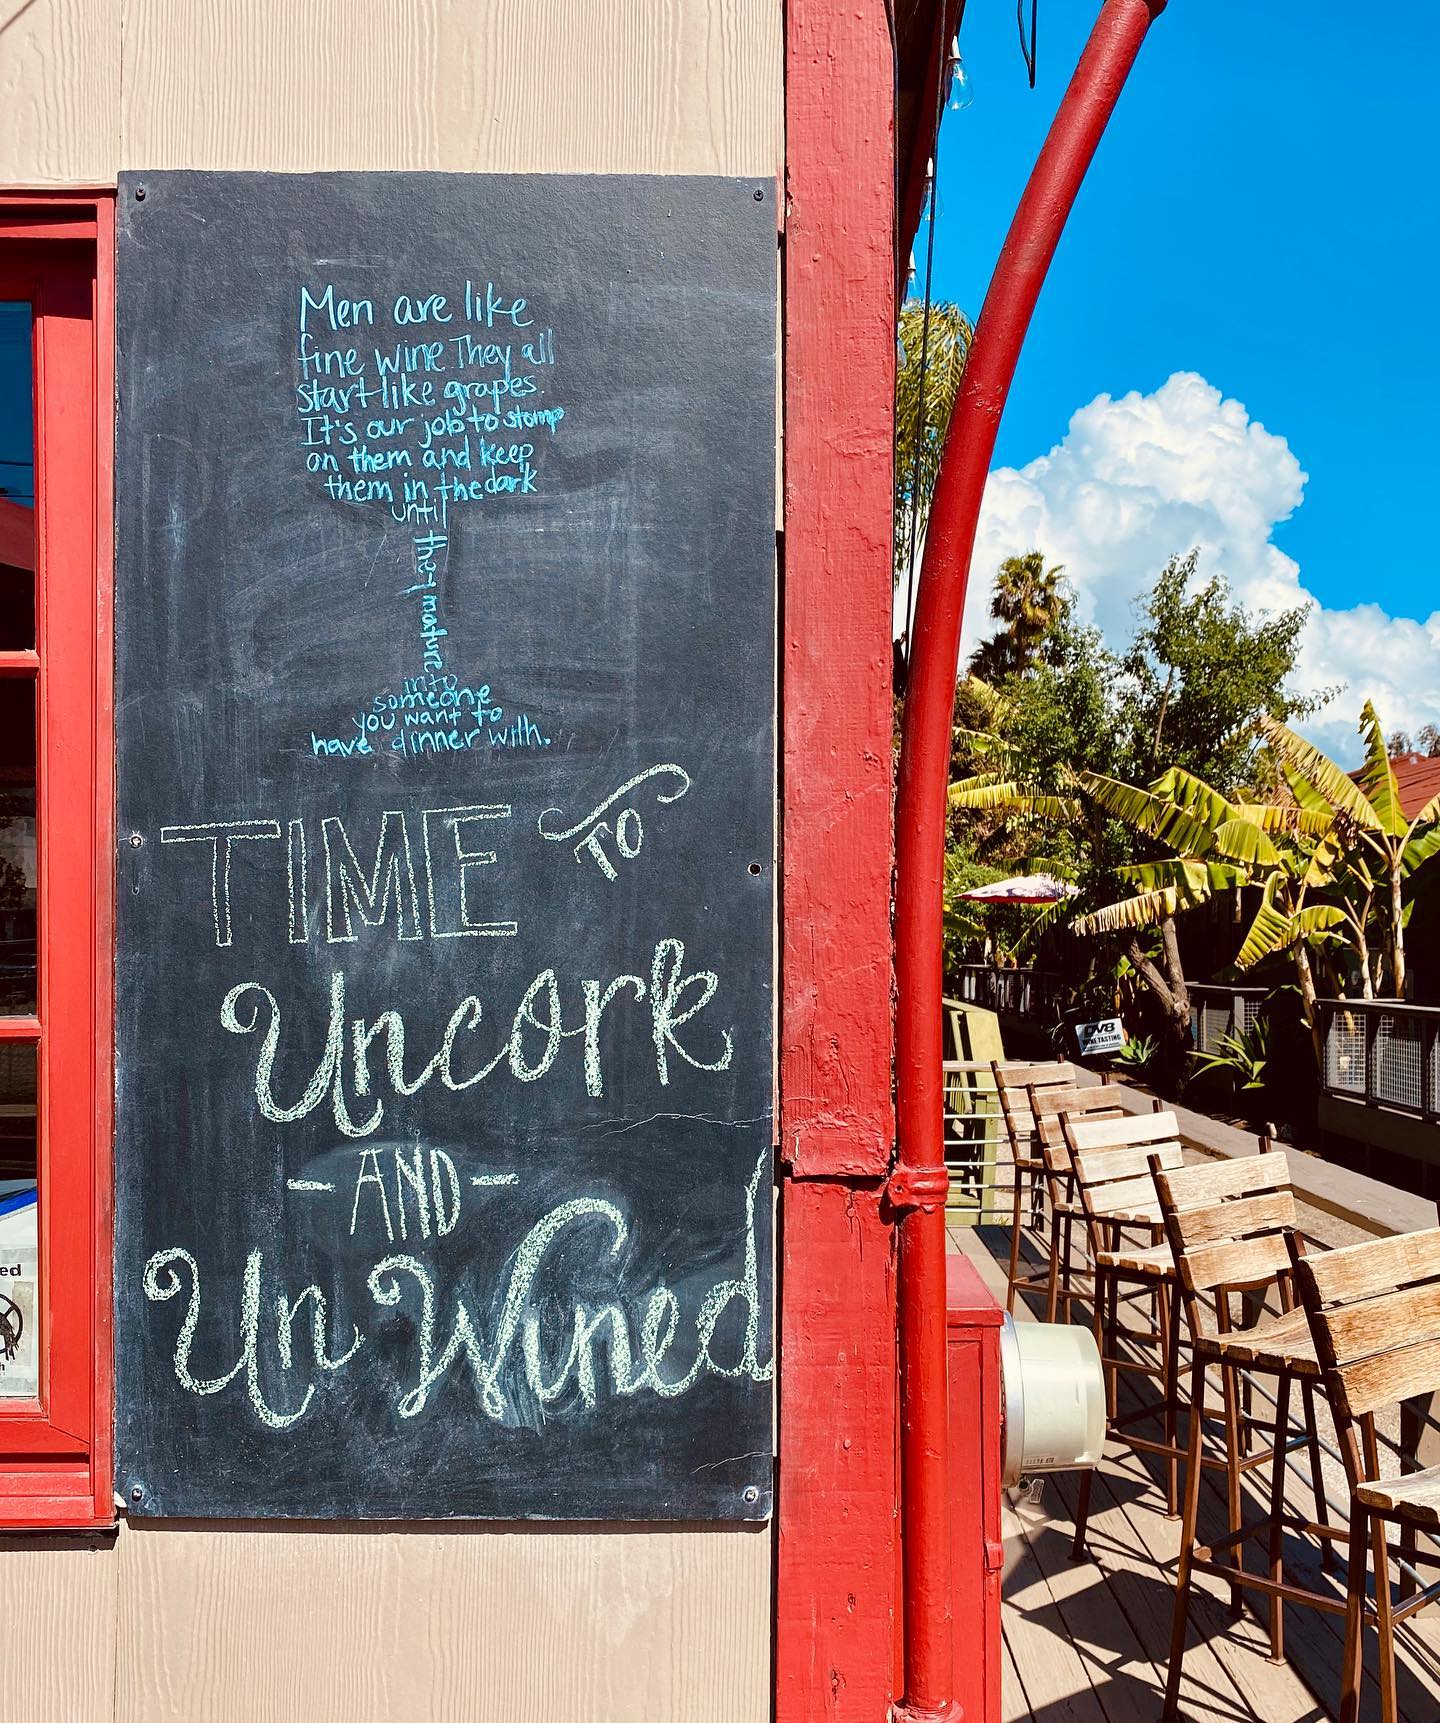 Men are like
fine wine They all
start like grapes.
It's our job to stomp
on them and keep
them in the dark
until
they mature
into
someone
you want to
have dinner with.
TIME TO
Uncork
- AND -
UnWined
DV8
WINE TASTING
ed